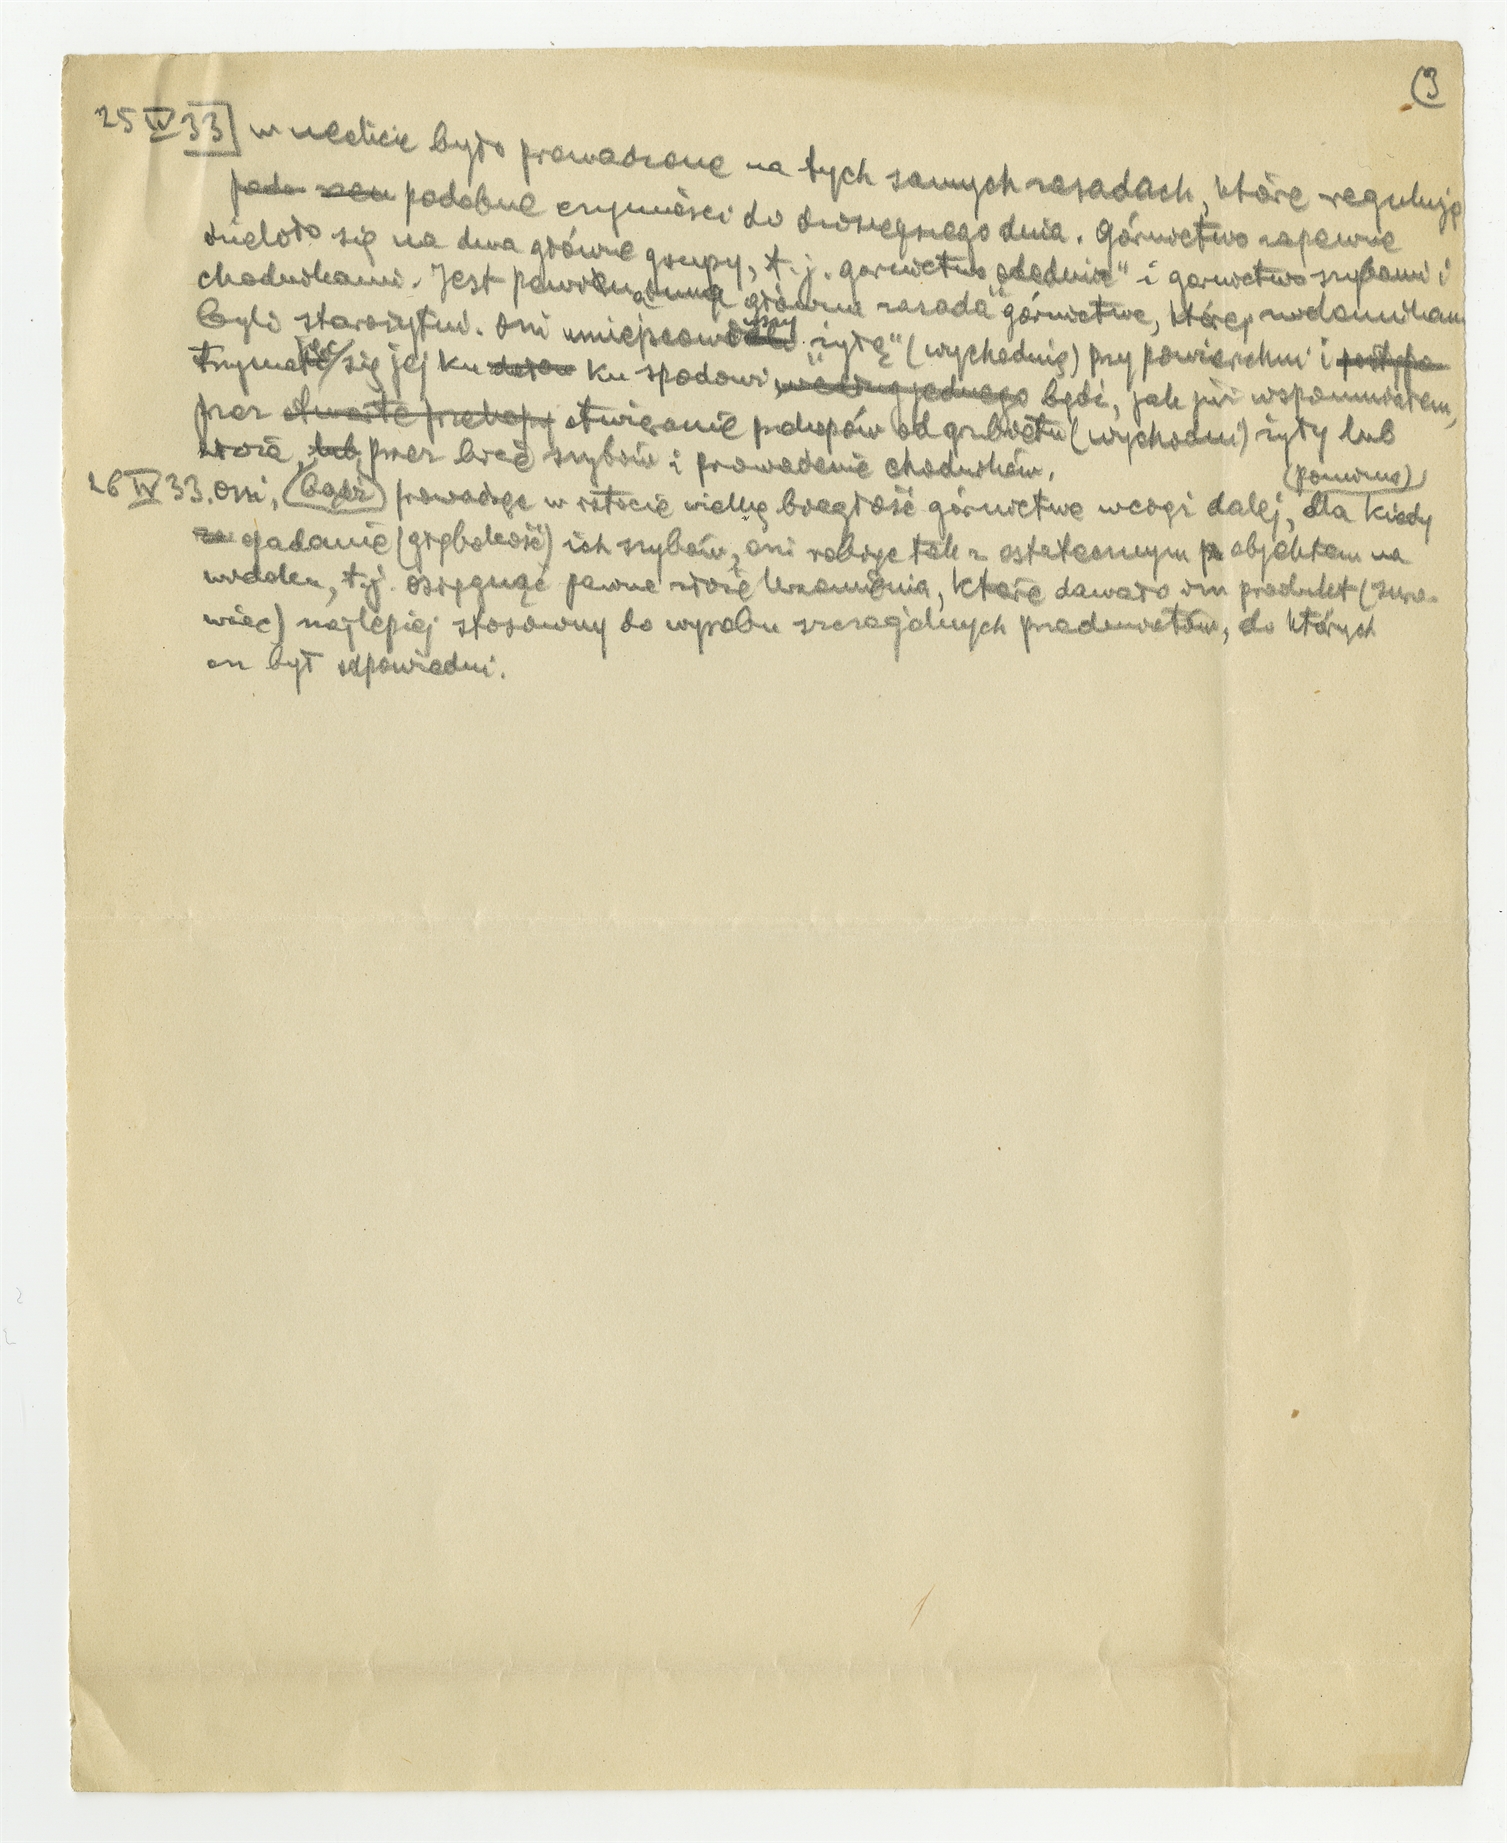 (3
25 IV 33] w neolicie było prowadzone na tych samych zasadach, które regulują
podobne czynności do dzisiejszego dnia. Górnictwo zapewne
dzieliło się na dwa główne grupy, t.j. górnictwo „odednia" i górnictwo szybami i
chodnikami. Jest pewien główna zasada górnictwa, której
byli starożytni. Oni „żyłę" (wychodnię) przy powierzchni i
się jej ku ku spodowi, bądź, jak już wspomniałem,
przez otwieranie przekopów od grzbietu (wychodni) żyły lub
złoża, przez bicie szybów i prowadzenie chodników.
(pomimo)
26 IV 33. Oni, (bądź) prowadząc w istocie wielką biegłość górnictwa wciąż dalej, dla kiedy
(głębokość) ich szybów, oni robiąc tak z ostatecznym objektem na
widoku, t.j. osiągnąć pewne złoże krzemienia, które dawało im produkt (suro-
wiec) najlepiej stosowny do wyrobu szczególnych przedmiotów, do których
on był odpowiedni.